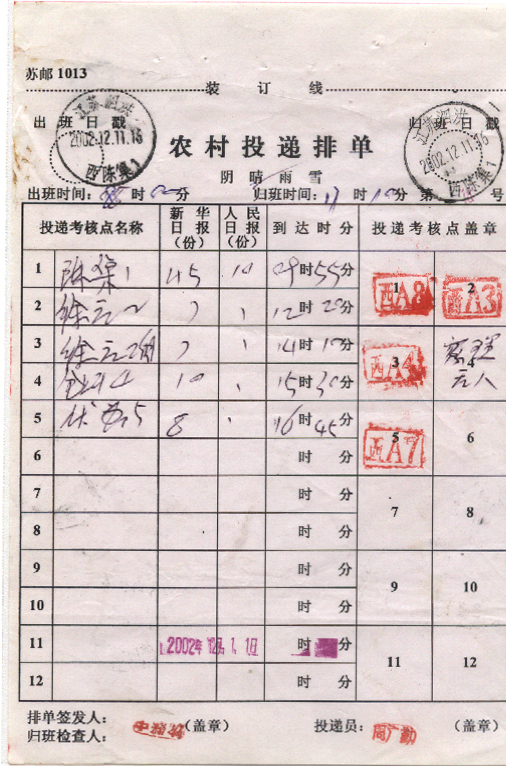 苏邮 1013
装 订 线
出 班 日 戳
归 班 日 戳
江苏泗洪
2002.12.11.16
西陈集1
江苏泗洪
2002.12.11.16
西陈集1
农村投递排单
阴 晴 雨 雪
出班时间: 时 分 归班时间: 17 时 10 分 第 号
投递考核点名称 新华日报(份) 人民日报(份) 到达时分 投递考核点盖章
1 陈集1 45 10 09 时 55 分 1 西A8 2 西A3
2 12 时 20 分
3 14 时 10 分 3 4
4 10 15 时 30 分
5 8 16 时 45 分 5 西A7 6
6 时 分
7 时 分 7 8
8 时 分
9 时 分 9 10
10 时 分
11 2002年12月11日 时 分 11 12
12 时 分
排单签发人: (盖章) 投递员: 周广勤 (盖章)
归班检查人: